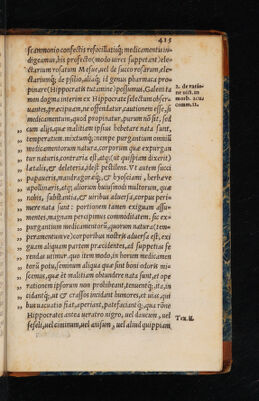 415
scammonio confectis refocillatiuq; medicamentu in-
digeamus, his profecto (modo vires suppetant) ele-
ctarium rosatum Mesuæ, uel de succo rosarum, ele-
ctarium q; de psilio, aliáq; id genus pharmaca pro-
pinare (Hippocratis tutamine) possumus, Galeni ta-
men dogma interim ex Hippocrate selectum obser-
uantes, præcipuum, ne offendat, cautionem esse, si
medicamentum, quod propinatur, purum nõ sit, sed
cum alijs, quæ illius impetus hebetare nata sunt,
temperatum mixtumq;: nempe purgantium omniũ
medicamentorum natura, corporum quæ expurgan
tur naturis, contraria est, atq; (ut quispiam dixerit)
lætalis, & deleteria, idest pestilens. Vt autem succi
papaueris, mandragoræq;, & hyosciami, herbæq;
apollinaris, atq; aliorum huiusmodi multorum, quæ
nobis, substantia, & uiribus aduersa, corpus peri-
mere nata sunt: portionem tamen exiguam assu-
mentes, magnam percipimus commoditatem. sic ex-
purgantium medicamentorũ, quorum natura (tem-
peramentumue) corporibus nostris aduersa est, exi
guam aliquam partem præcidentes, ad suppetias fe
rendas utimur. quo item modo, in horum medicamen
torũ potu, seminum aliqua quæ sint boni odoris mi-
scemus, quæ et malitiam obtundere nata sunt, et ope
rationem ipsorum non prohibeant, tenuentq;, ita, in
cidantq;, ut & crassos incidant humores, et uias, qui
bus euacuatio fiat, aperiant, patefaciant q;. qua rōne
Hippocrates antea ueratro nigro, uel daucum, uel
seseli, uel cuminum, uel anisum, uel aliud quippiam
2. de ratio-
ne uict. in
morb. acu.
com. 12.
Tex. 11.